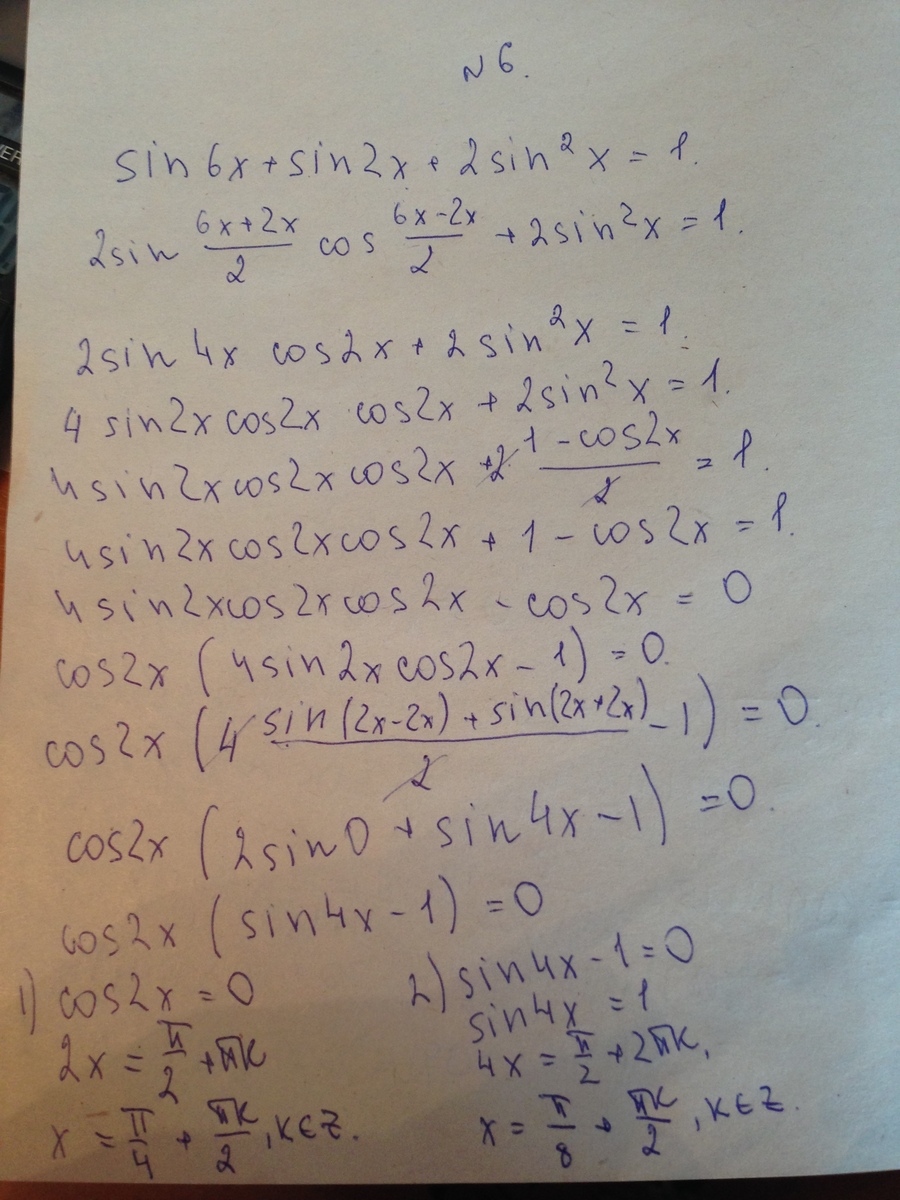 N 6.
sin6x + sin2x + 2sin²x = 1.
2sin (6x+2x)/2 cos (6x-2x)/2 + 2sin²x = 1.
2sin 4x cos2x + 2sin²x = 1.
4 sin2x cos2x cos2x + 2sin²x = 1.
4sin2x cos2x cos2x + 2 (1-cos2x)/2 = 1.
4sin2x cos2x cos2x + 1 - cos2x = 1.
4sin2x cos2x cos2x - cos2x = 0
cos2x (4sin2x cos2x - 1) = 0.
cos2x (4 (sin(2x-2x) + sin(2x+2x))/2 - 1) = 0.
cos2x (2sin0 + sin4x - 1) = 0.
cos2x (sin4x - 1) = 0
1) cos2x = 0
2x = π/2 + πk
x = π/4 + πk/2, k∈Z.
2) sin4x - 1 = 0
sin4x = 1
4x = π/2 + 2πk,
x = π/8 + πk/2, k∈Z.